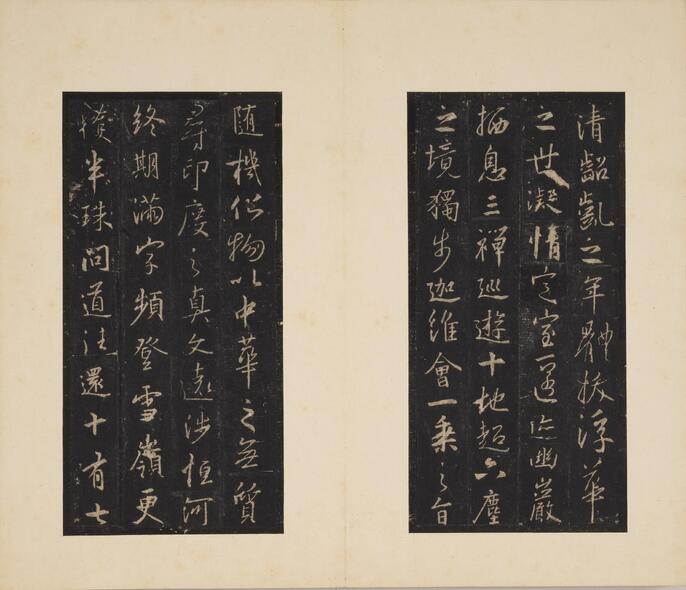 清齠齔之年體拔浮華
之世凝情定室匿迹幽巖
栖息三禪巡遊十地超六塵
之境獨步迦維會一乘之旨
隨機化物以中華之無質
尋印度之真文遠涉恒河
終期滿字頻登雪嶺更
獲半珠問道往還十有七